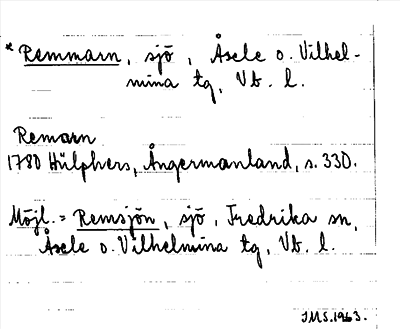 * Remmarn, sjö, Åsele o. Vilhel-
mina tg, Vb. l.
Remarn
1780 Hülphers, Ångermanland, s. 330.
Möjl. = Remsjön, sjö, Fredrika sn,
Åsele o. Vilhelmina tg, Vb. l.
JMS. 1963.